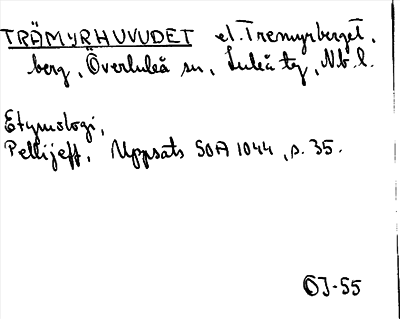 TRÄMYRHUVUDET el. Tremyrberget,
berg, Överluleå sn, Luleå tg, Nb. l.
Etymologi,
Pellijeff, Uppsats SOA 1044, s. 35.
ÖJ-55